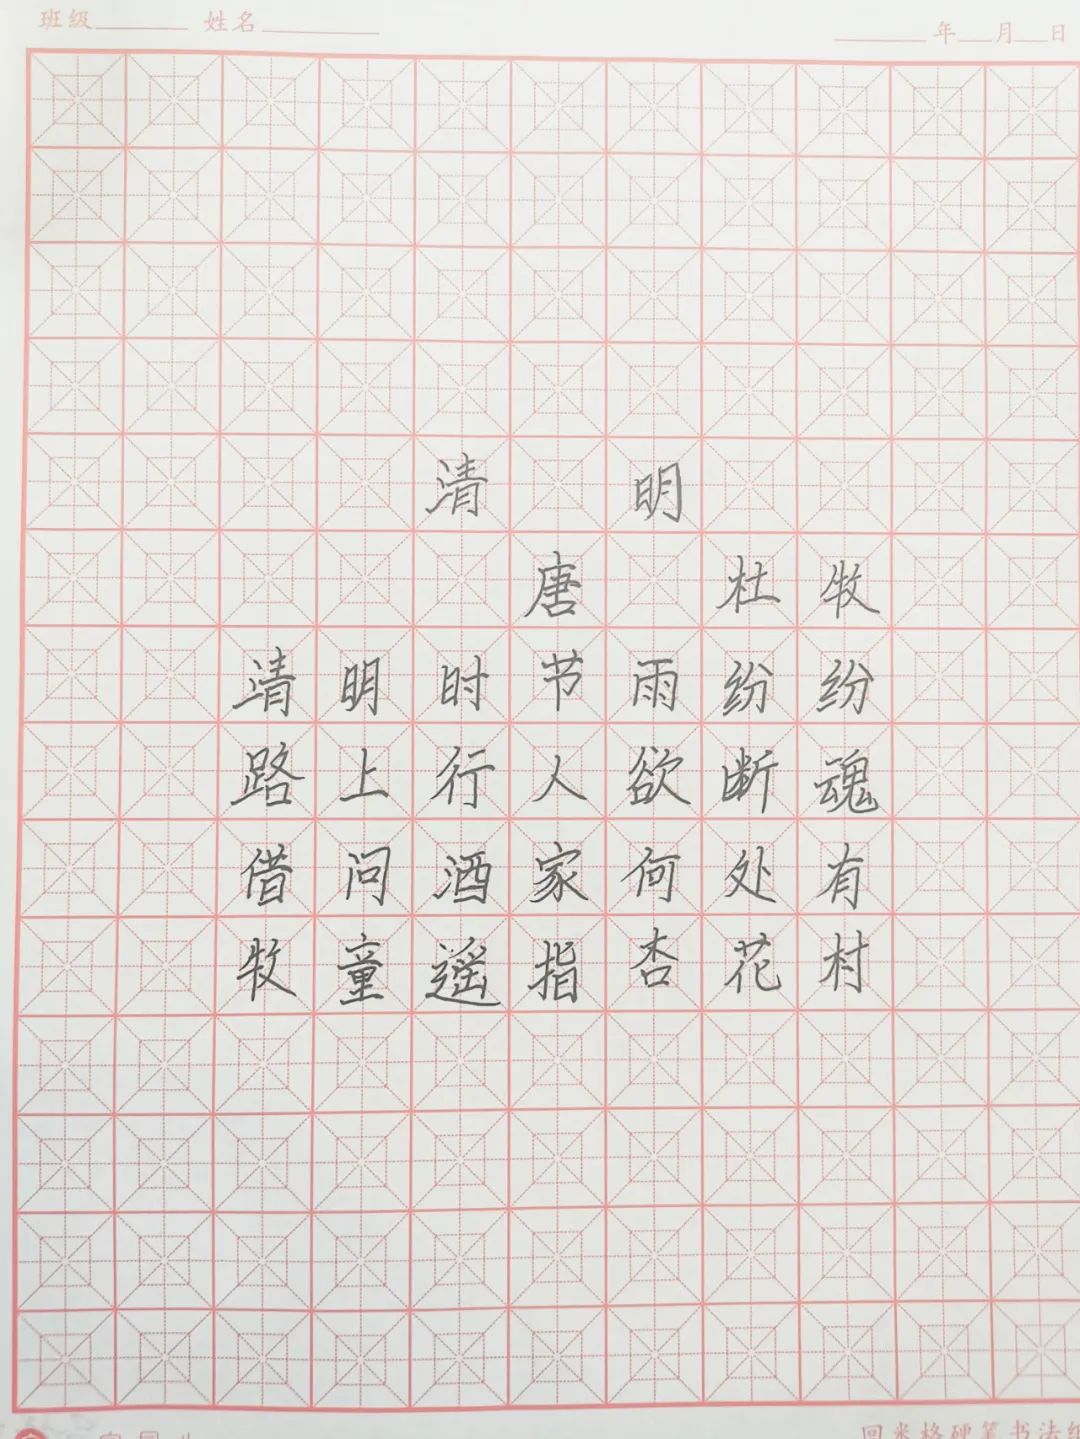 班级 姓名 年 月 日
清 明
唐 杜牧
清明时节雨纷纷
路上行人欲断魂
借问酒家何处有
牧童遥指杏花村
回米格硬笔书法纸